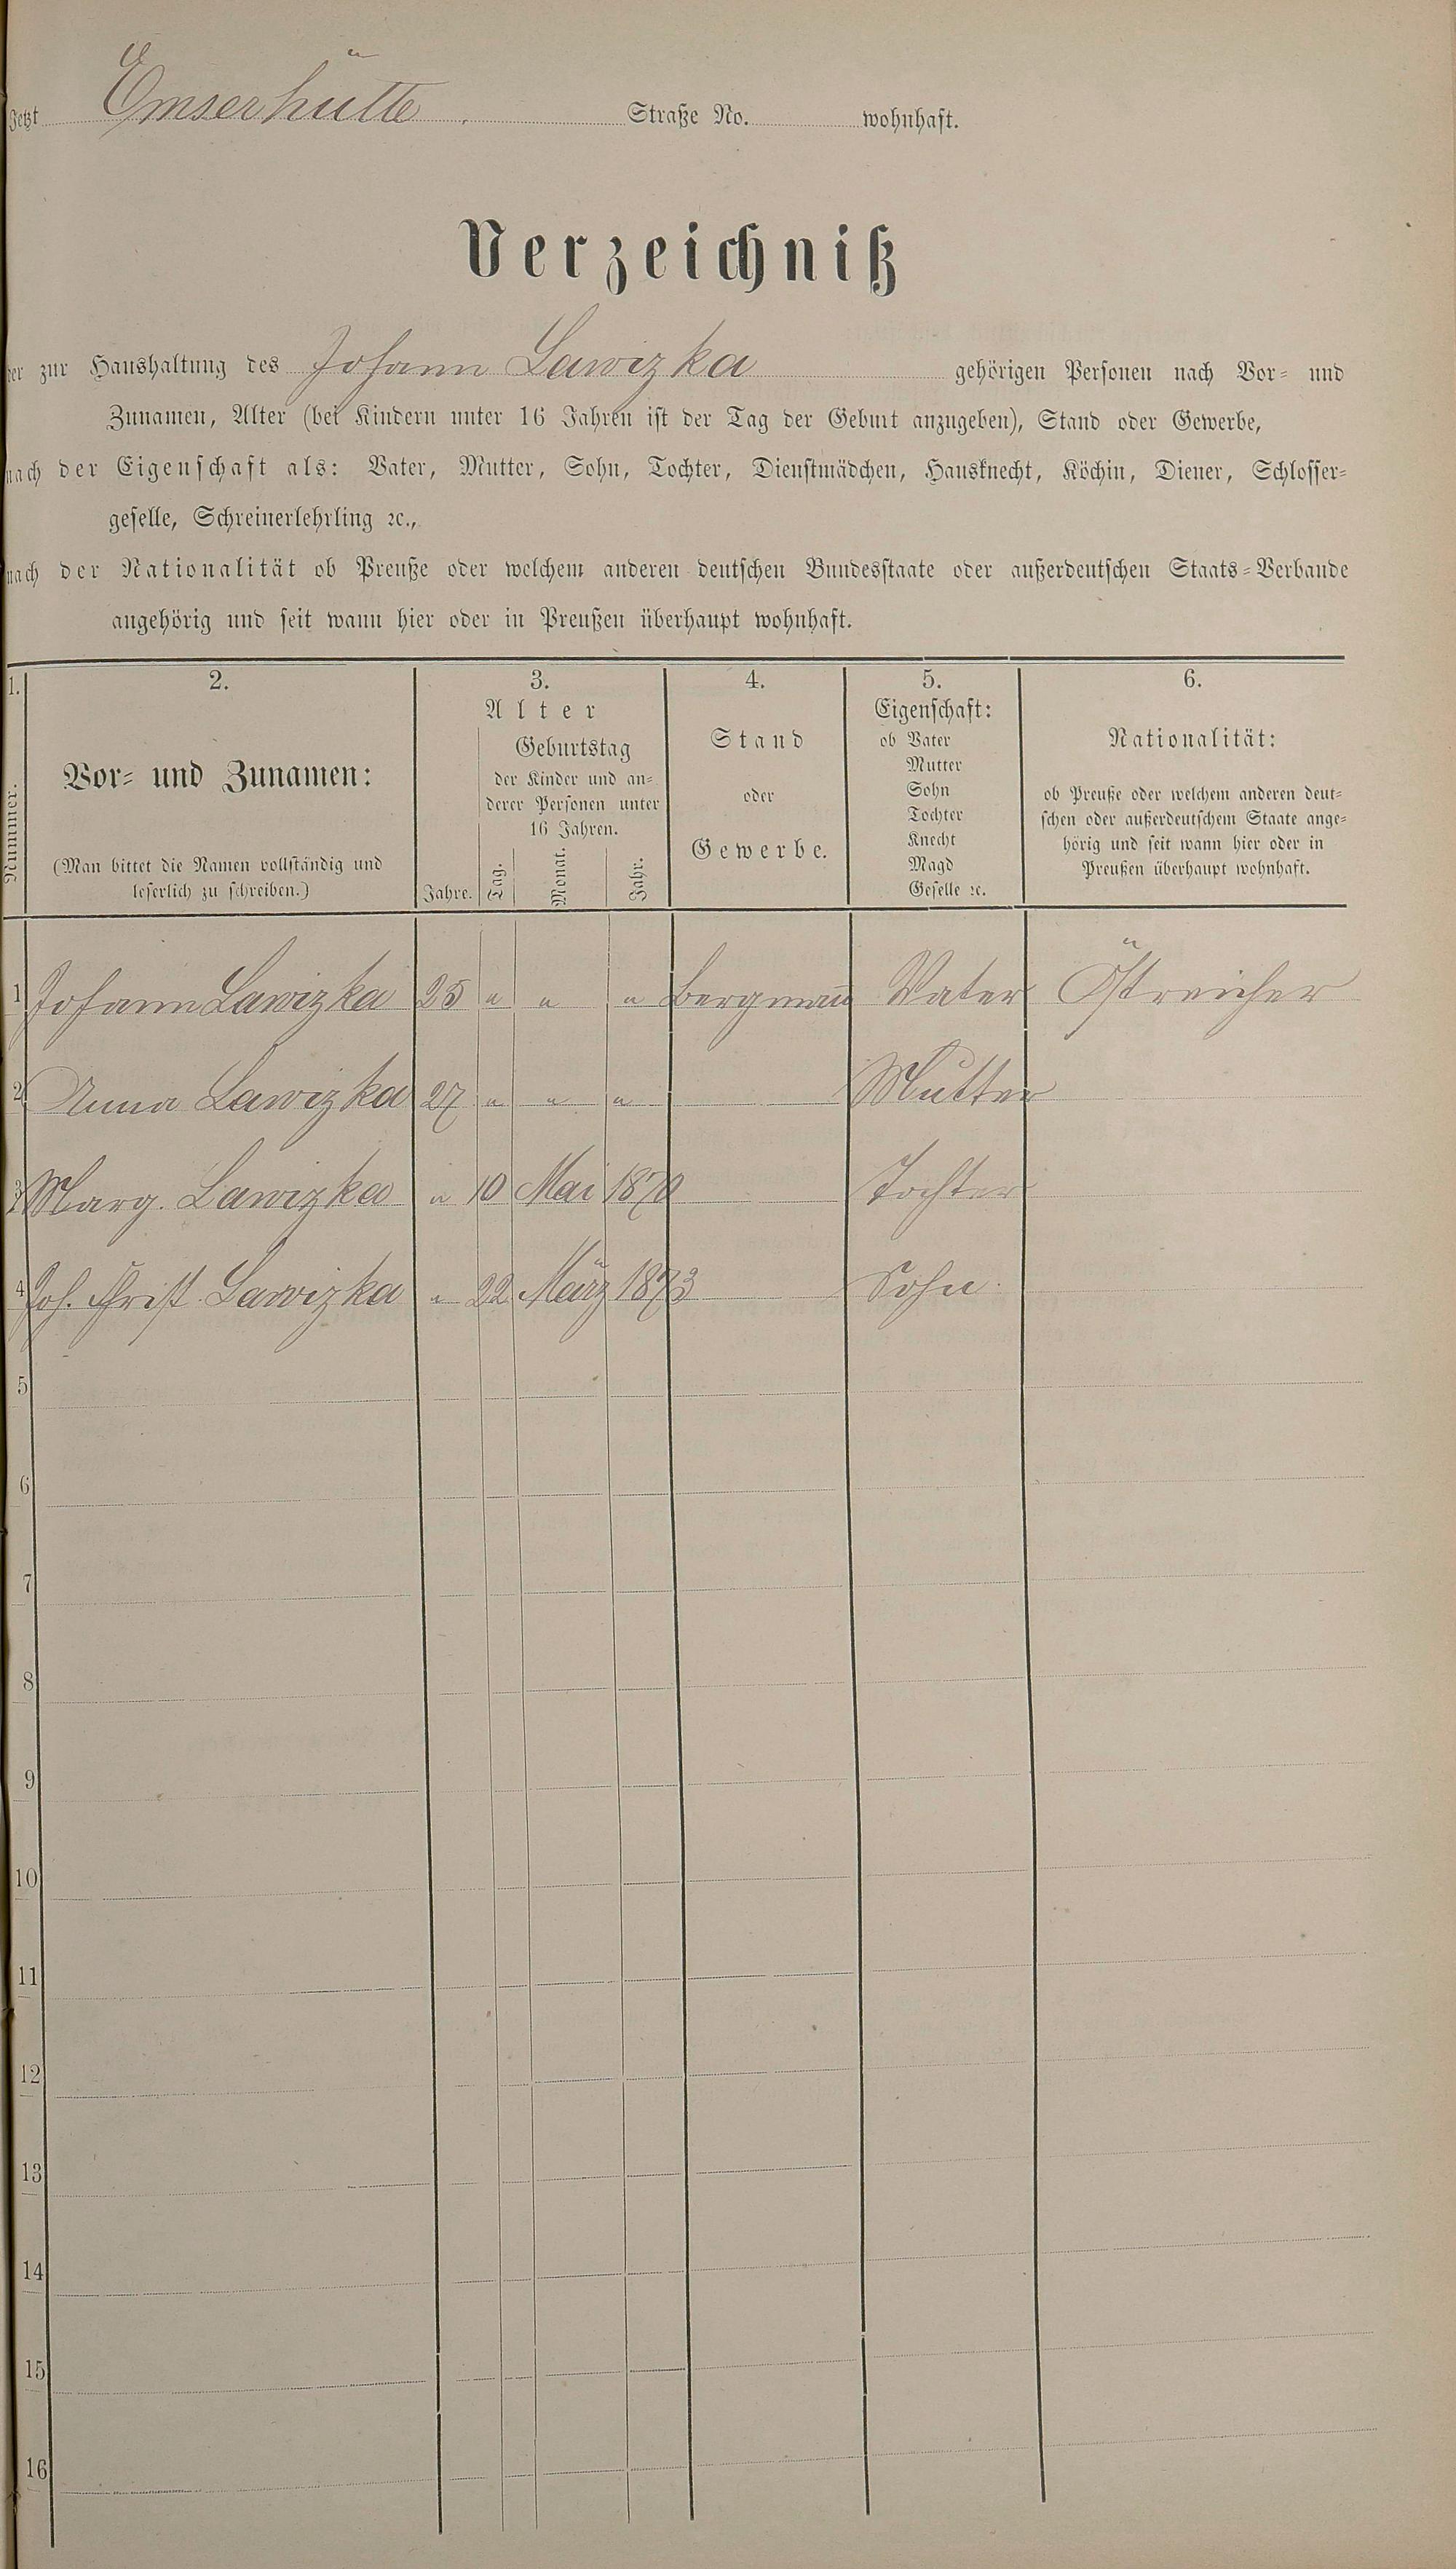 Jetzt Emserhütte Straße No. wohnhaft.
Verzeichniß
der zur Haushaltung des Johann Lawizka gehörigen Personen nach Vor= und
Zunamen, Alter (bei Kindern unter 16 Jahren ist der Tag der Geburt anzugeben), Stand oder Gewerbe,
nach der Eigenschaft als: Vater, Mutter, Sohn, Tochter, Dienstmädchen, Hausknecht, Köchin, Diener, Schlosser=
geselle, Schreinerlehrling ꝛc.,
nach der Nationalität ob Preuße oder welchem anderen deutschen Bundesstaate oder außerdeutschen Staats=Verbande
angehörig und seit wann hier oder in Preußen überhaupt wohnhaft.
1. 2. 3. 4. 5. 6.
Nummer.
Vor= und Zunamen:
(Man bittet die Namen vollständig und
leserlich zu schreiben.)
Alter
Geburtstag
der Kinder und an=
derer Personen unter
16 Jahren.
Jahre. Tag. Monat. Jahr.
Stand
oder
Gewerbe.
Eigenschaft:
ob Vater
Mutter
Sohn
Tochter
Knecht
Magd
Geselle ꝛc.
Nationalität:
ob Preuße oder welchem anderen deut=
schen oder außerdeutschem Staate ange=
hörig und seit wann hier oder in
Preußen überhaupt wohnhaft.
1 Johann Lawizka 25 " " " Bergmann Vater Östreicher
2 Anna Lawizka 27 " " " Mutter
3 Marg. Lawizka " 10 Mai 1870 Tochter
4 Joh. Christ. Lawizka " 22 März 1873 Sohn
5
6
7
8
9
10
11
12
13
14
15
16